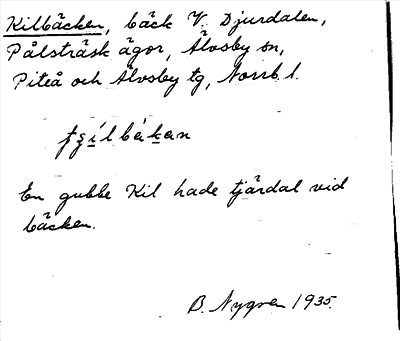 Kilbäcken, bäck V. Djurdalen,
Pålsträsk ägor, Älvsby sn,
Piteå och Älvsby tg, Norrb. l.
En gubbe Kil hade tjärdal vid
bäcken.
B. Nygren 1935.